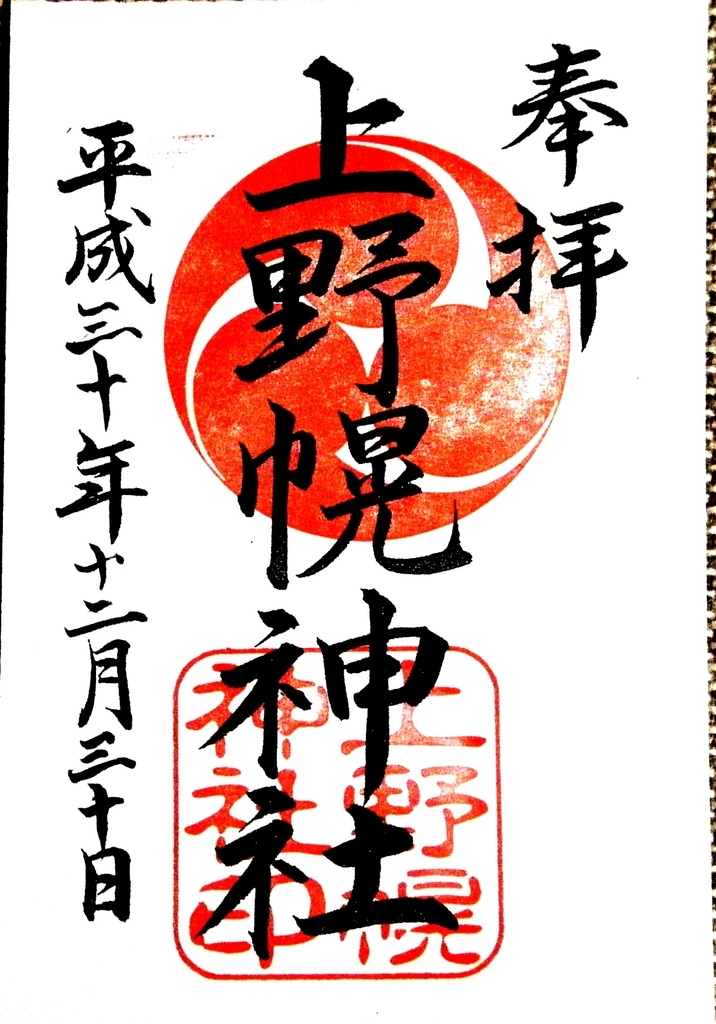 奉拝
上野幌神社
平成三十年十二月三十日
上野幌
神社印